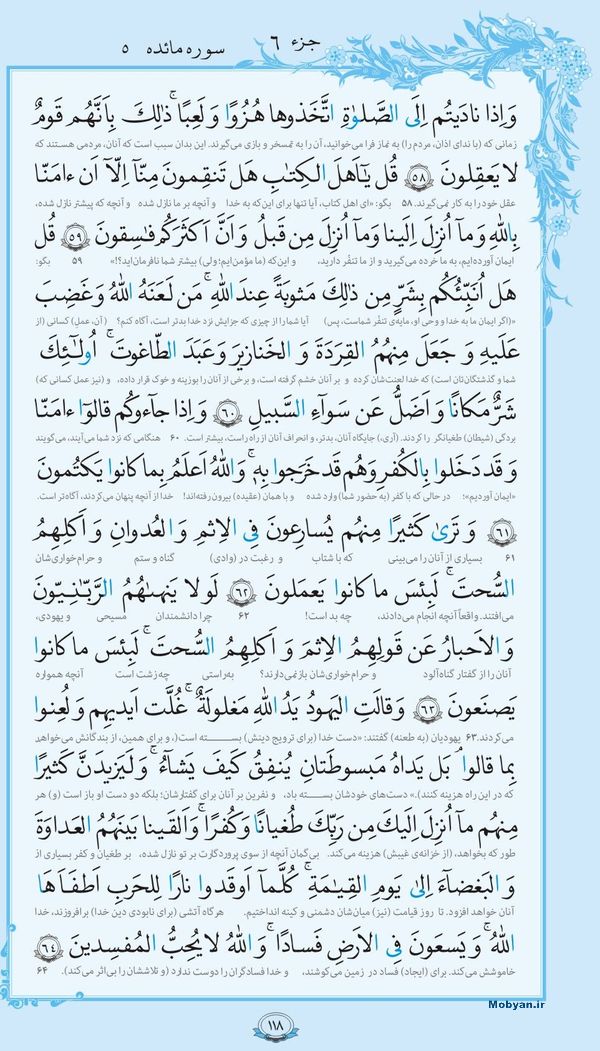 جزء ٦
سوره مائده ٥
وَاِذا نادَيتُم اِلَى الصَّلوٰةِ اتَّخَذوها هُزُوًا وَ لَعِبًا ۚ ذٰلِكَ بِاَنَّهُم قَومٌ
زمانی که (با ندای اذان، مردم را) به نماز فرا می‌خوانید، آن را به تمسخر و بازی می‌گیرند. این بدان سبب است که آنان، مردمی هستند که
لا يَعقِلونَ ﴿٥٨﴾ قُل يٰٓاَهلَ الكِتٰبِ هَل تَنقِمونَ مِنّآ اِلّآ اَن ءامَنّا
عقل خود را به کار نمی‌گیرند. ٥٨ بگو: «ای اهل کتاب، آیا تنها برای این‌که به خدا و آنچه بر ما نازل شده و آنچه که پیشتر نازل شده،
بِاللهِ وَ مآ اُنزِلَ اِلَينا وَ مآ اُنزِلَ مِن قَبلُ وَ اَنَّ اَكثَرَكُم فٰسِقونَ ﴿٥٩﴾ قُل
ایمان آورده‌ایم، به ما خرده می‌گیرید و از ما تنفّر دارید، و این‌که (ما مؤمن‌ایم؛ ولی) بیشتر شما نافرمان‌اید؟!» ٥٩ بگو:
هَل اُنَبِّئُكُم بِشَرٍّ مِن ذٰلِكَ مَثوبَةً عِندَ اللهِ ۚ مَن لَعَنَهُ اللهُ وَ غَضِبَ
«(اگر ایمان ما به خدا و وحی او، مایه‌ی تنفّر شماست، پس) آیا شما را از چیزی که جزایش نزد خدا بدتر است، آگاه کنم؟ (آن، عمل) کسانی (از
عَلَيهِ وَ جَعَلَ مِنهُمُ القِرَدَةَ وَ الخَنازيرَ وَ عَبَدَ الطّاغوتَ ۚ اُولٰٓئِكَ
شما و گذشتگان‌تان است) که خدا لعنت‌شان کرده و بر آنان خشم گرفته است، و برخی از آنان را بوزینه و خوک قرار داده، و (نیز عمل کسانی که)
شَرٌّ مَكانًا وَ اَضَلُّ عَن سَوآءِ السَّبيلِ ﴿٦٠﴾ وَ اِذا جآءوكُم قالوٓا ءامَنّا
بردگی (شیطان) طغیانگر را کردند. (آری،) جایگاه آنان، بدتر، و انحراف آنان از راه راست، بیشتر است. ٦٠ هنگامی که نزد شما می‌آیند، می‌گویند
وَ قَد دَخَلوا بِالكُفرِ وَ هُم قَد خَرَجوا بِهٖ ۚ وَ اللهُ اَعلَمُ بِما كانوا يَكتُمونَ
«ایمان آوردیم.»؛ در حالی که با کفر (به حضور شما) وارد شده و با همان (عقیده) بیرون رفته‌اند! خدا از آنچه پنهان می‌کردند، آگاه‌تر است.
﴿٦١﴾ وَ تَرىٰ كَثيرًا مِنهُم يُسارِعونَ فِى الاِثمِ وَ العُدوانِ وَ اَكلِهِمُ
٦١ بسیاری از آنان را می‌بینی که با شتاب و رغبت در (وادی) گناه و ستم و حرام‌خواری‌شان
السُّحتَ ۚ لَبِئسَ ما كانوا يَعمَلونَ ﴿٦٢﴾ لَولا يَنهىٰهُمُ الرَّبّٰنِيّونَ
می‌افتند. واقعاً آنچه انجام می‌دادند، چه بد است! ٦٢ چرا دانشمندان مسیحی و یهودی،
وَ الاَحبارُ عَن قَولِهِمُ الاِثمَ وَ اَكلِهِمُ السُّحتَ ۚ لَبِئسَ ما كانوا
آنان را از گفتار گناه‌آلود و حرام‌خواری‌شان باز نمی‌دارند؟ به‌راستی چه زشت است آنچه همواره
يَصنَعونَ ﴿٦٣﴾ وَ قالَتِ اليَهودُ يَدُ اللهِ مَغلولَةٌ ۚ غُلَّت اَيديهِم وَ لُعِنوا
می‌کردند. ٦٣ یهودیان (به طعنه) گفتند: «دست خدا (برای ترویج دینش) بسته است (و، برای همین، از بندگانش می‌خواهد
بِما قالوا ۘ بَل يَداهُ مَبسوطَتانِ يُنفِقُ كَيفَ يَشآءُ ۚ وَ لَيَزيدَنَّ كَثيرًا
که در این راه هزینه کنند).» دست‌های خودشان بسته باد، و نفرین بر آنان برای گفتارشان؛ بلکه دو دست او باز است (و) هر
مِنهُم مآ اُنزِلَ اِلَيكَ مِن رَبِّكَ طُغيانًا وَ كُفرًا ۚ وَ اَلقَينا بَينَهُمُ العَداوَةَ
طور که بخواهد، (از خزانه‌ی غیبش) هزینه می‌کند. بی‌گمان آنچه از سوی پروردگارت بر تو نازل شده، بر طغیان و کفر بسیاری از
وَ البَغضآءَ اِلىٰ يَومِ القِيٰمَةِ ۚ كُلَّمآ اَوقَدوا نارًا لِلحَربِ اَطفَاَهَا
آنان خواهد افزود. تا روز قیامت (نیز) میان‌شان دشمنی و کینه انداختیم. هرگاه آتشی (برای نابودی دین خدا) برافروزند، خدا
اللهُ ۚ وَ يَسعَونَ فِى الاَرضِ فَسادًا ۚ وَ اللهُ لا يُحِبُّ المُفسِدينَ ﴿٦٤﴾
خاموشش می‌کند. برای (ایجاد) فساد در زمین می‌کوشند، و خدا فسادگران را دوست ندارد (و تلاششان را بی‌اثر می‌کند). ٦٤
Mobyan.ir
١١٨